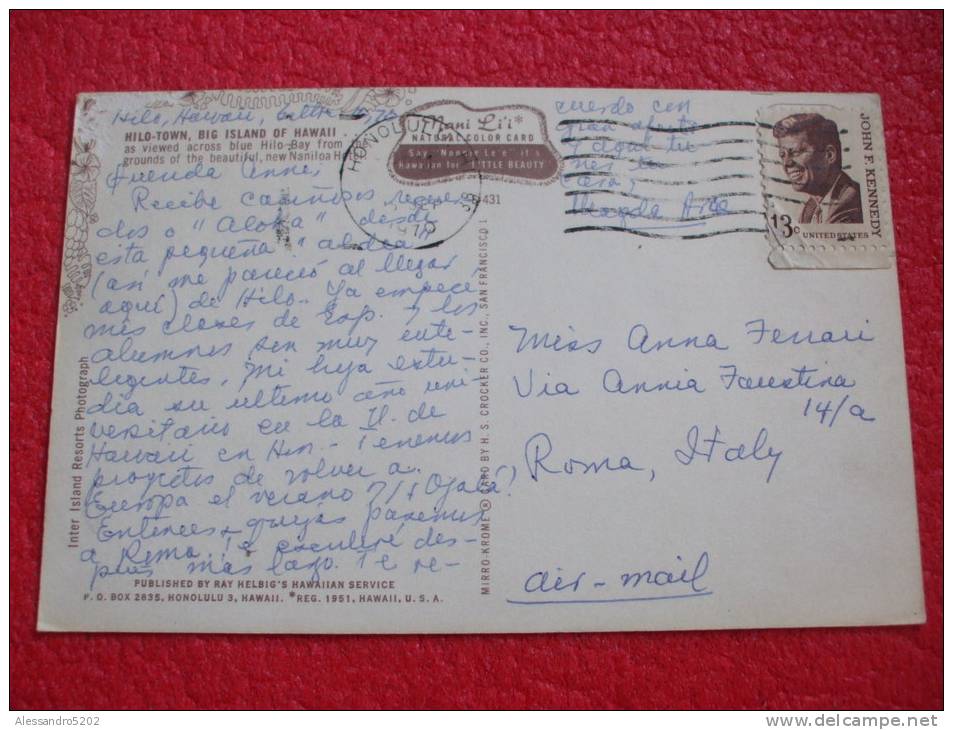 Hilo, Hawaii,
HILO-TOWN, BIG ISLAND OF HAWAII
as viewed across blue Hilo Bay from
grounds of the beautiful, new Naniloa H
Querida Anna,
Recibe cariñosos recuer-
dos o "Aloha" desde
esta pequeña "aldea"
(así me pareció al llegar
aquí) de Hilo. Ya empecé
mis clases de Esp. y los
alumnos son muy inte-
ligentes. Mi hija estu-
dia su último año uni-
versitario en la U. de
Hawaii en Hon. - Tenemos
proyectos de volver a
Europa el verano 71 Ojalá!
Entonces quizás pasemos
a Roma. Te escribiré des-
pués más largo. Te re-
PUBLISHED BY RAY HELBIG'S HAWAIIAN SERVICE
P. O. BOX 2835, HONOLULU 3, HAWAII. *REG. 1951, HAWAII, U. S. A.
Inter Island Resorts Photograph
Nani Li'i*
NATURAL COLOR CARD
Say "Nannie Lee'e" it's
Hawaiian for "LITTLE BEAUTY"
431
HONOLULU
MIRRO-KROME ® CARD BY H. S. CROCKER CO., INC., SAN FRANCISCO 1
cuerdo con
gran afecto
y aquí tie
nes tu
casa,
Magda
JOHN F. KENNEDY
13c
UNITED STATES
Miss Anna Ferrari
Via Annia Faustina
14/a
Roma, Italy
air-mail
Alessandro5202
www.delcampe.net